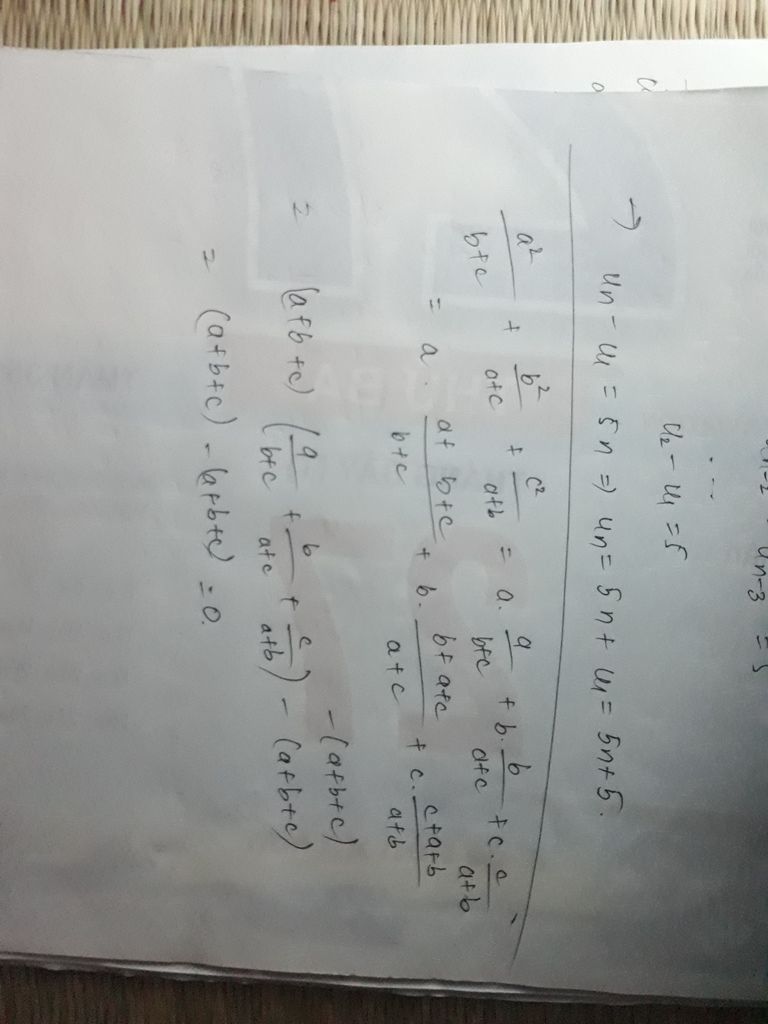 u₂ - u₁ = 5
→ un - u₁ = 5n ⇒ un = 5n + u₁ = 5n + 5.
a²/(b+c) + b²/(a+c) + c²/(a+b) = a. a/(b+c) + b. b/(a+c) + c. c/(a+b)
= a. (a+b+c)/(b+c) + b. (b+a+c)/(a+c) + c. (c+a+b)/(a+b)
- (a+b+c)
= (a+b+c) (a/(b+c) + b/(a+c) + c/(a+b)) - (a+b+c)
= (a+b+c) - (a+b+c) = 0.